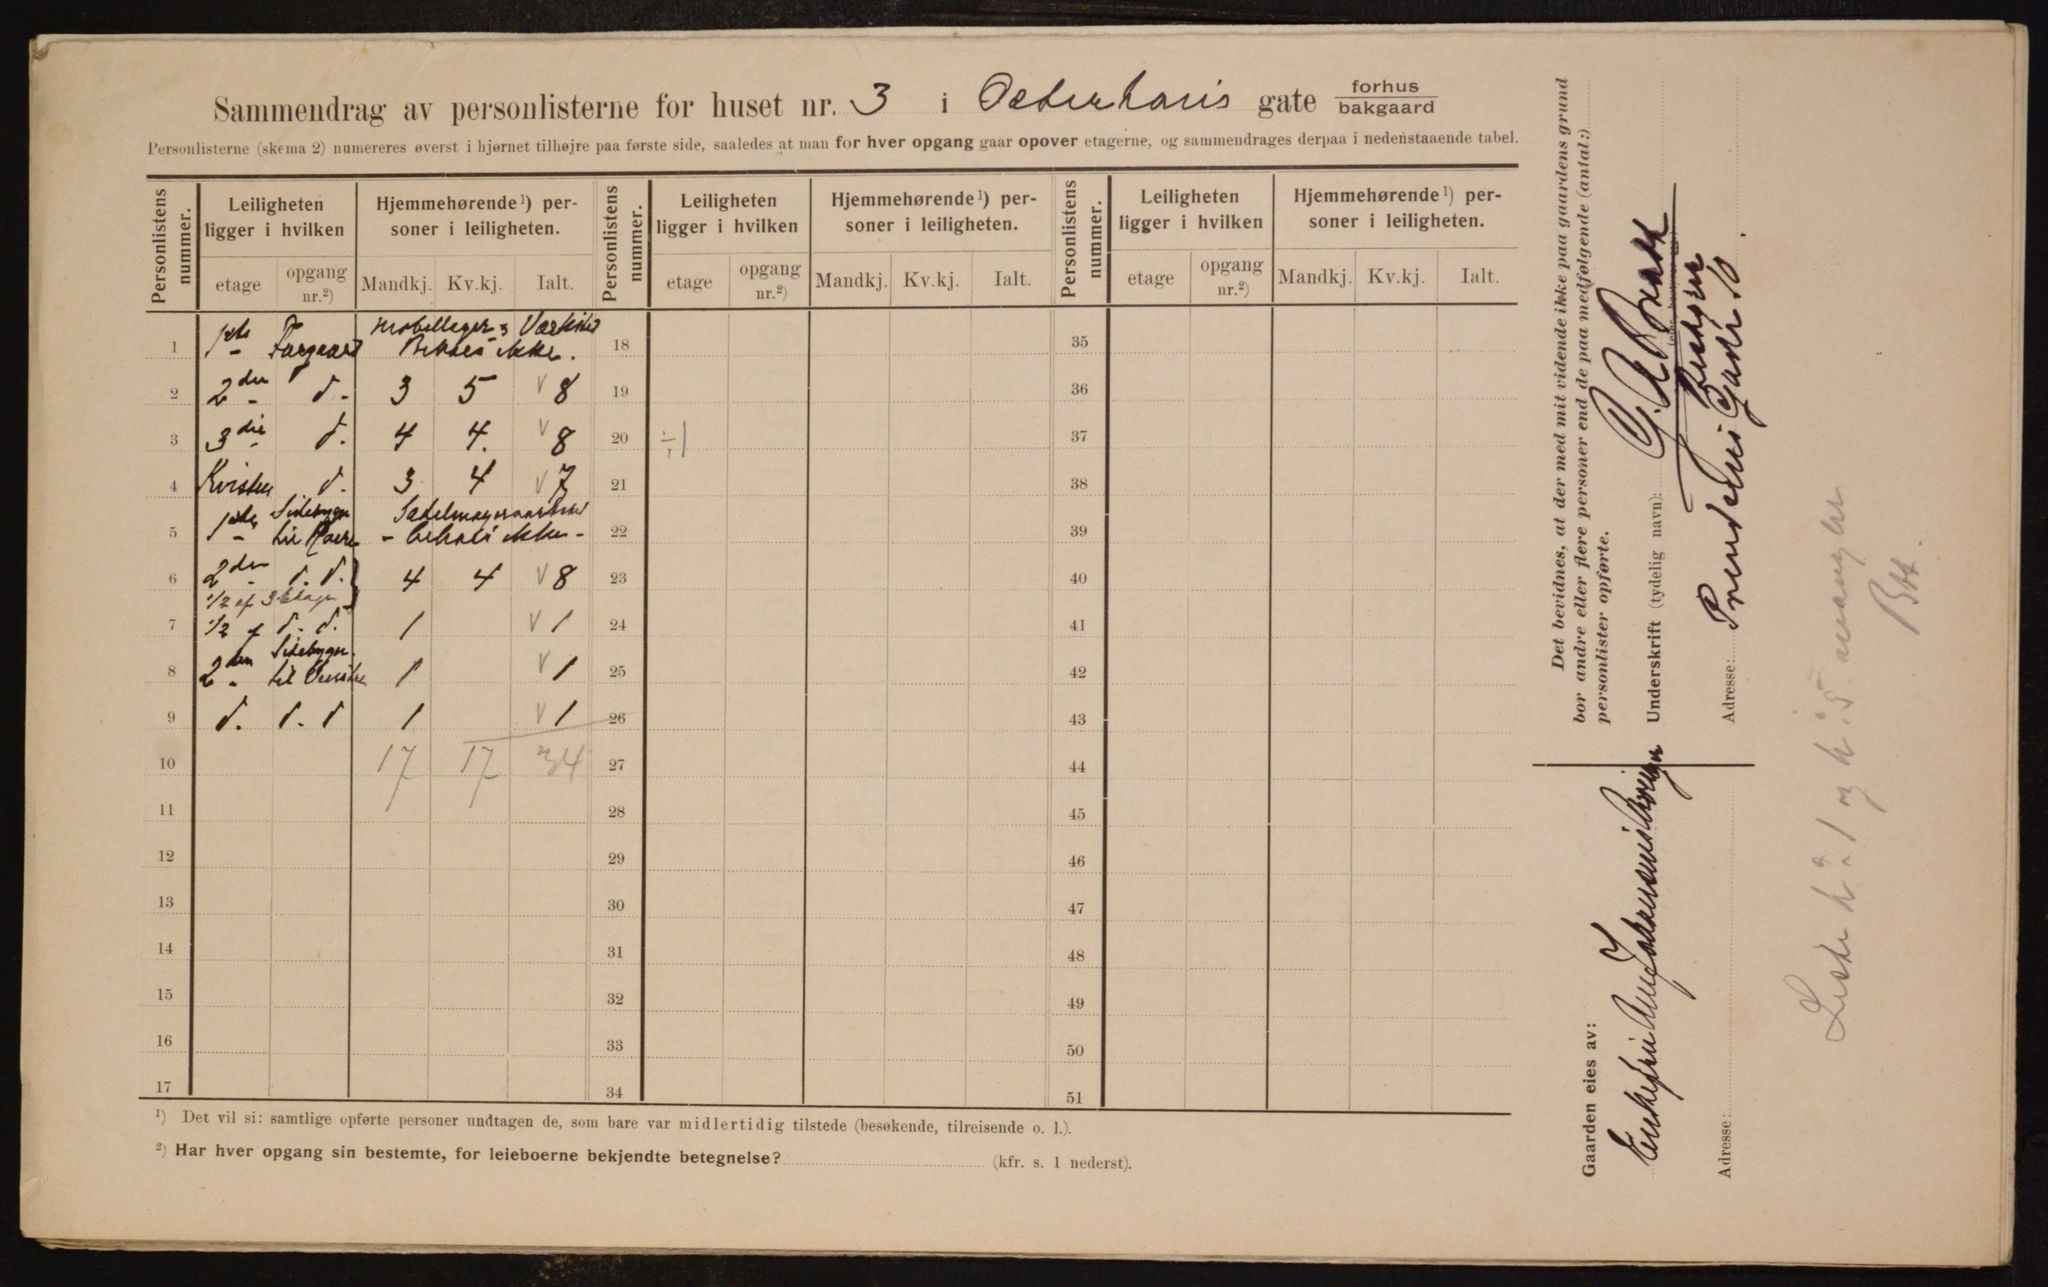 Sammendrag av personlisterne for huset nr. 3 i Osterhaus gate forhus bakgaard
Personlisterne (skema 2) numereres øverst i hjørnet tilhøjre paa første side, saaledes at man for hver opgang gaar opover etagerne, og sammendrages derpaa i nedenstaaende tabel.
Personlistens nummer. Leiligheten ligger i hvilken Hjemmehørende¹) personer i leiligheten. Personlistens nummer. Leiligheten ligger i hvilken Hjemmehørende¹) personer i leiligheten. Personlistens nummer. Leiligheten ligger i hvilken Hjemmehørende¹) personer i leiligheten.
etage opgang nr.²) Mandkj. Kv.kj. Ialt. etage opgang nr.²) Mandkj. Kv.kj. Ialt. etage opgang nr.²) Mandkj. Kv.kj. Ialt.
1 1ste Forgaard Mobellager & Værksted Beboes ikke. 18 35
2 2den d. 3 5 V 8 19 36
3 3die d. 4 4. V 8 20 ÷1 37
4 Kvisten d. 3 4 V 7 21 38
5 1ste Sidebygn til Høire Sadelmagerværksted - beboes ikke - 22 39
6 2den d. d. 4 4 V 8 23 40
1/2 af 3 Etage
7 1/2 af d. d. 1 V 1 24 41
8 2den Sidebygn. til Venstre 1 V 1 25 42
9 d. d. d 1 V 1 26 43
10 17 17 34 27 44
11 28 45
12 29 46
13 30 47
14 31 48
15 32 49
16 33 50
17 34 51
¹) Det vil si: samtlige opførte personer undtagen de, som bare var midlertidig tilstede (besøkende, tilreisende o. l.).
²) Har hver opgang sin bestemte, for leieboerne bekjendte betegnelse? (kfr. s. 1 nederst).
Det bevidnes, at der med mit vidende ikke paa gaardens grund
bor andre eller flere personer end de paa medfølgende (antal:)
personlister opførte.
Underskrift (tydelig navn):
Adresse: Gade 10
Gaarden eies av: Enkefru
Adresse:
Liste No 1 og No 5 mangler